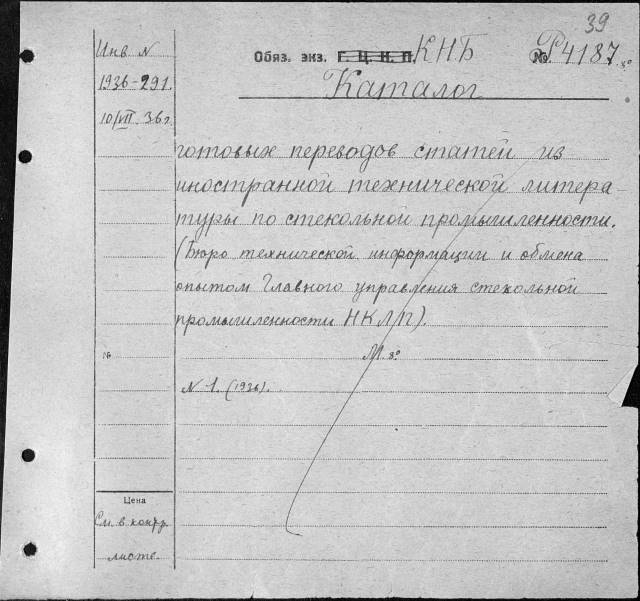 39
Инв N
Обяз. экз. Г. Ц. К. П. КНБ
№ Р4187 8°
1936-291.
Каталог
10/VII 36 г.
готовых переводов статей из
иностранной технической литера-
туры по стекольной промышленности.
(Бюро технической информации и обмена
опытом Главного управления стекольной
промышленности НКЛП).
№
М. 8°
N 1. (1936).
Цена
См. в контр.
листе.